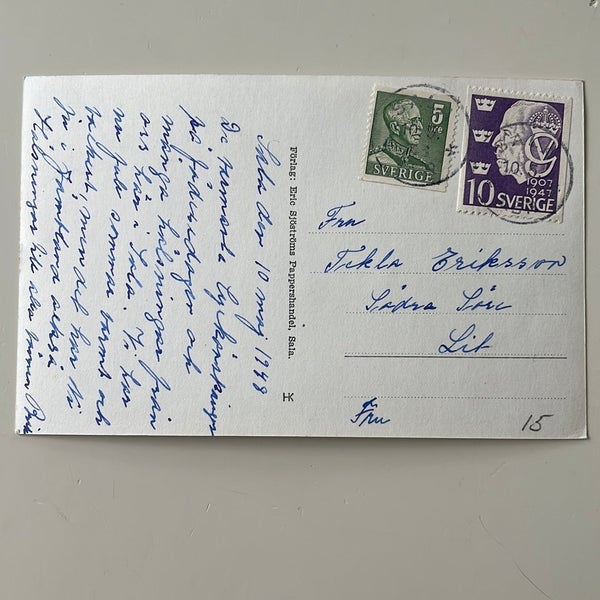 Sala den 10 maj 1948
De varmaste lyckönskningar
på födelsedagen och
många hälsningar från
oss här i Sala. Vi har
nu full sommar varmt och
vackert, men det har Ni
ju i Jämtland också
Hälsningar till alla från
Förlag: Eric Sjöströms Pappershandel, Sala.
HK
5
öre
SVERIGE
10
1907
1947
10 SVERIGE
Fru
Tekla Eriksson
Södra Söre
Lit
Fru
15